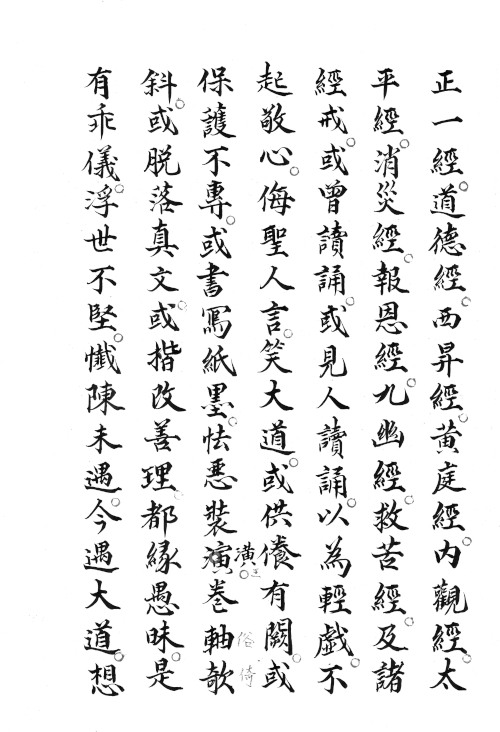 正一經。道德經。西昇經。黃庭經。內觀經。太
平經。消災經。報恩經。九幽經。救苦經。及諸
經戒。或曾讀誦。或見人讀誦。以為輕戲。不
起敬心。侮聖人言。笑大道。或供養有闕。或
保護不專。或書寫紙墨。怯悪裝演。卷軸欹
潢 俗 倚
斜。或脫落真文。或揩改善理。都緣愚昧。是
有乖儀。浮世不堅。懺陳未遇。今遇大道。想